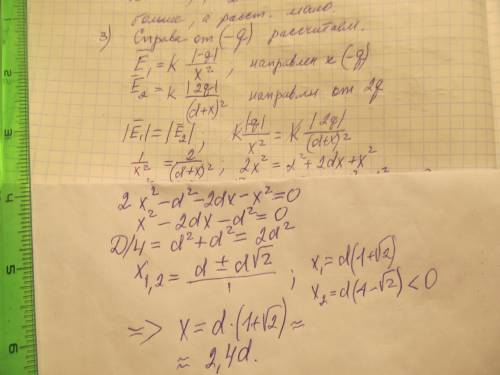 больше, а расст. мало.
3) Справа от (-q) рассчитаем.
E₁ = k |-q| / x², направлен к (-q)
E₂ = k |2q| / (d+x)² направлен от 2q
|E₁| = |E₂|, k |q| / x² = k |2q| / (d+x)²
1/x² = 2/(d+x)²; 2x² = d² + 2dx + x²
2x² - d² - 2dx - x² = 0
x² - 2dx - d² = 0
D/4 = d² + d² = 2d²
x₁,₂ = (d ± d√2) / 1; x₁ = d(1+√2)
x₂ = d(1-√2) < 0
=> x = d·(1+√2) ≈
≈ 2,4d.
5
6